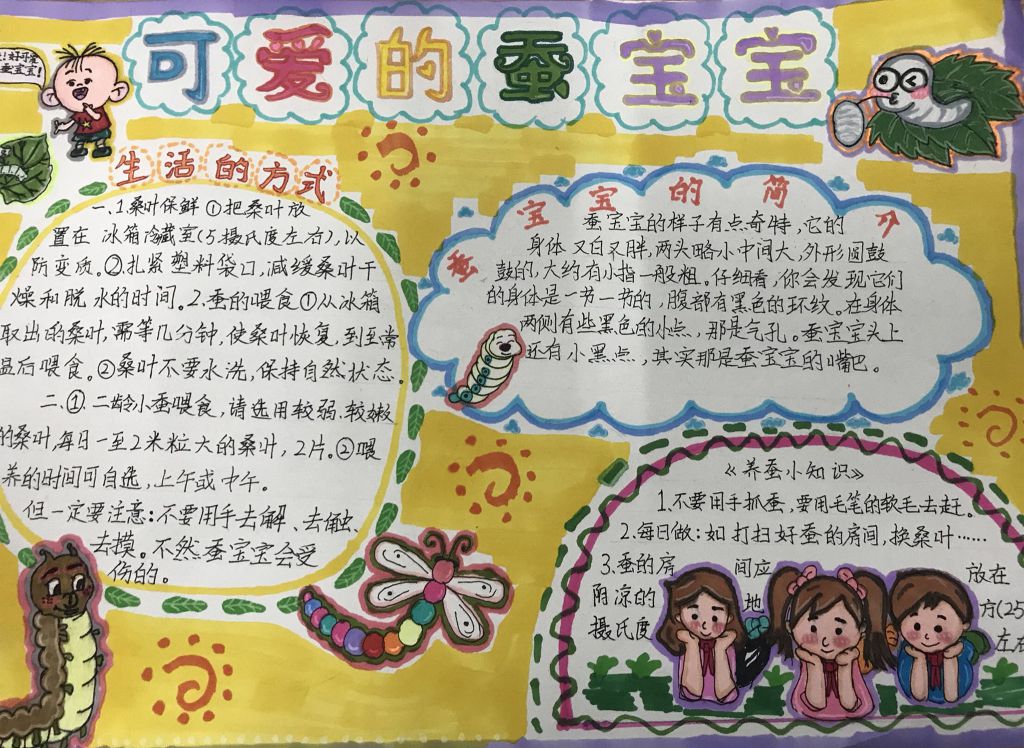 可爱的蚕宝宝
！好可爱
蚕宝宝！
生活的方式
一、1.桑叶保鲜①把桑叶放
置在 冰箱冷藏室(5摄氏度左右),以
防变质。②扎紧塑料袋口,减缓桑叶干
燥和脱水的时间。2.蚕的喂食①从冰箱
取出的桑叶,需等几分钟,使桑叶恢复,到至常
温后喂食。②桑叶不要水洗,保持自然状态。
二、① 二龄小蚕喂食,请选用较弱、较嫩
的桑叶,每日一至2米粒大的桑叶,2片。②喂
养的时间可自选,上午或中午。
但一定要注意:不要用手去解、去触、
去摸。不然蚕宝宝会受
伤的。
蚕宝宝的简介
蚕宝宝的样子有点奇特,它的
身体又白又胖,两头略小中间大,外形圆鼓
鼓的,大约有小指一般粗。仔细看,你会发现它们
的身体是一节一节的,腹部有黑色的环纹。在身体
两侧有些黑色的小点,那是气孔。蚕宝宝头上
还有小黑点,其实那是蚕宝宝的嘴巴。
《养蚕小知识》
1.不要用手抓蚕,要用毛笔的软毛去赶。
2.每日做:如打扫好蚕的房间,换桑叶……
3.蚕的房间应放在
阴凉的地方(25
摄氏度左右